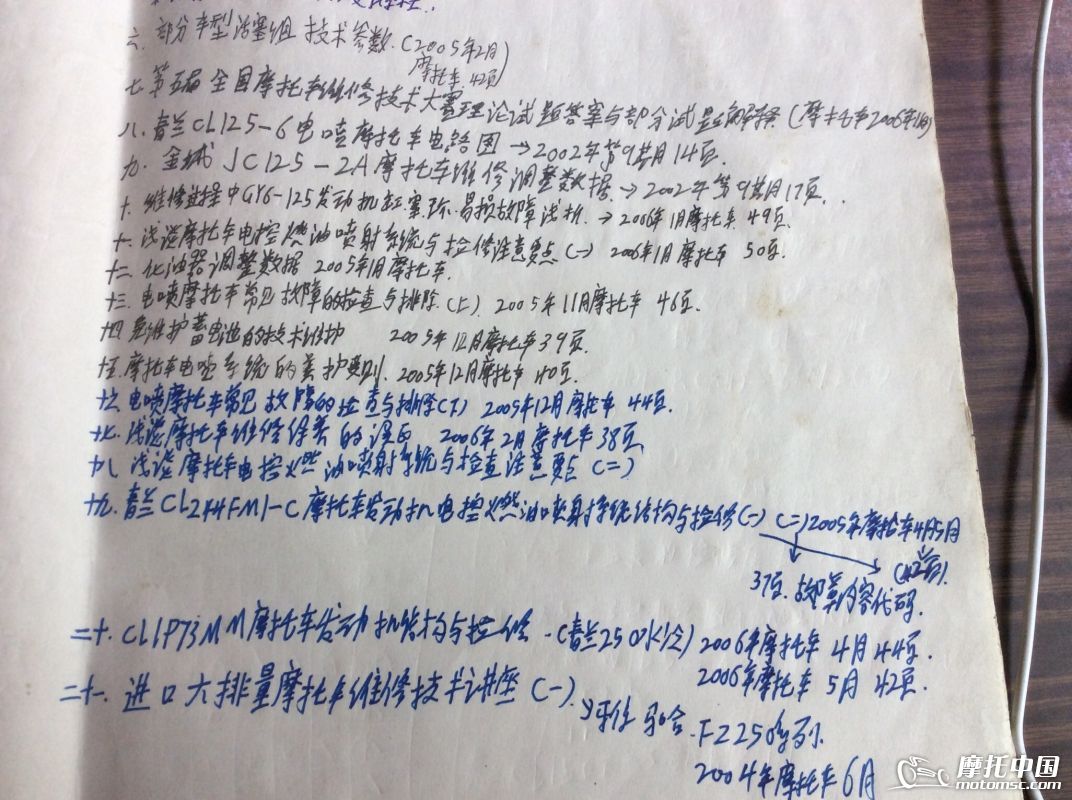 六. 部分车型活塞组技术参数.(2005年2月
摩托车 42页)
七.第五届全国摩托车维修技术大赛理论试题答案与部分试题解释(摩托车2006年1月)
八.春兰CL125-6电喷摩托车电路图→2002年第9期月14页.
九.金城JC125-2A摩托车维修调整数据→2002年第9期月17页
十.维修过程中GY6-125发动机缸、塞、环易损故障浅析.→2006年1月摩托车49页.
十一.浅谈摩托车电控燃油喷射系统与检修注意要点(一) 2006年1月摩托车 50页.
十二.化油器调整数据 2005年1月摩托车.
十三.电喷摩托车常见故障的检查与排除(上). 2005年11月摩托车 46页.
十四 免维护蓄电池的技术维护 2005年12月摩托车39页.
十五.摩托车电喷系统的养护要则. 2005年12月摩托车40页.
十六.电喷摩托车常见故障的检查与排除(下) 2005年12月摩托车 44页.
十七.浅谈摩托车维修保养的误区 2006年2月摩托车38页
十八.浅谈摩托车电控燃油喷射系统与检查注意要点(二)
十九.春兰CL244FMI-C摩托车发动机电控燃油喷射系统结构与检修(一)(二)2005年摩托车4月5月
37页. 故障内容代码.
(42页).
二十.CL1P73MM摩托车发动机结构与检修.(春兰250水冷)2006年摩托车 4月44页.
2006年摩托车 5月 42页.
二十一.进口大排量摩托车维修技术讲座(一).
→雅马哈.FZ250系列.
2004年摩托车6月
摩托中国
motomsc.com